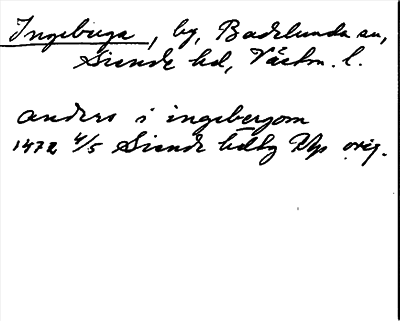 Ingeberga, by, Badelunda sn,
Siende hd, Västm. l.
anders i ingebergom
1472 4/5 Siende hdby Dhp orig.